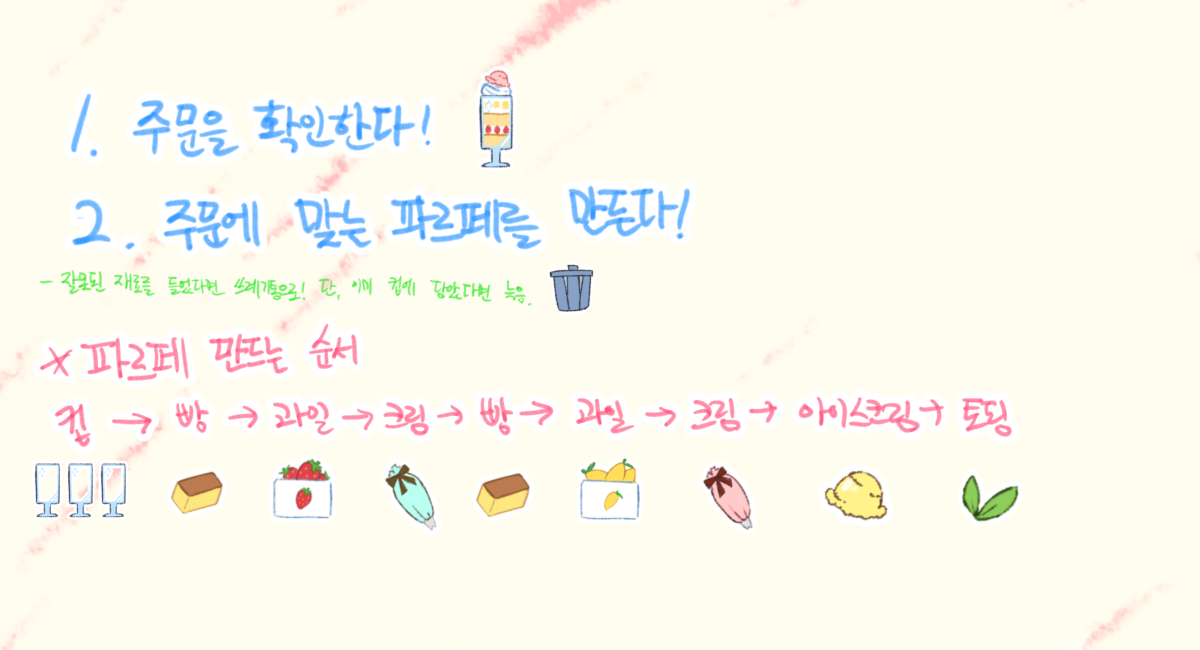 1. 주문을 확인한다!
2. 주문에 맞는 파르페를 만든다!
- 잘못된 재료를 들었다면 쓰레기통으로! 단, 이미 컵에 담았다면 늦음.
* 파르페 만드는 순서
컵 → 빵 → 과일 → 크림 → 빵 → 과일 → 크림 → 아이스크림 → 토핑